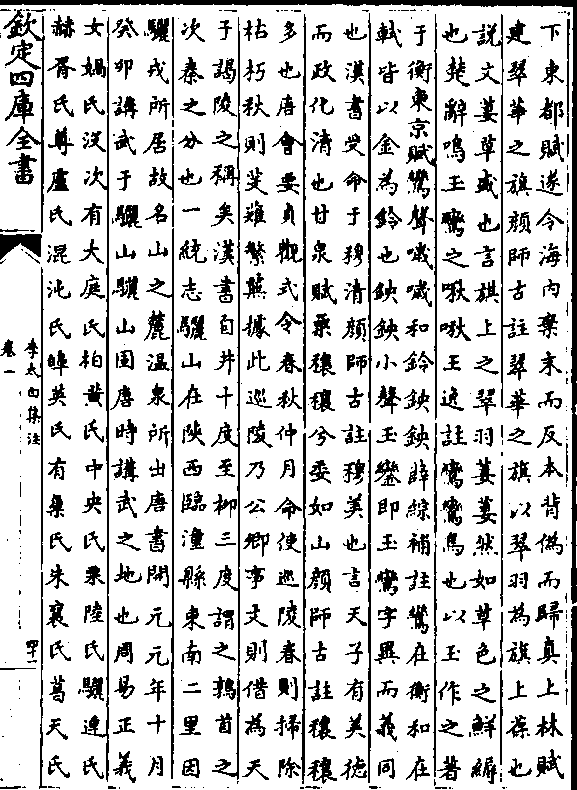 下東都賦遂令海内棄末而反本背偽而歸真上林賦
建翠華之旗顔師古註翠華之旗以翠羽為旗上葆也
説文萋草盛也言旗上之翠羽萋萋然如草色之鮮縟
也楚辭鳴玉鸞之啾啾王逸註鸞鸞鳥也以玉作之著
于衡東京賦鸞聲噦噦和鈴鉠鉠薛綜補註鸞在衡和在
軾皆以金為鈴也鉠鉠小聲玉鑾即玉鸞字異而義同
也漢書受命于穆清顔師古註穆美也言天子有美徳
而政化清也甘泉賦粟穰穰兮委如山顔師古註穰穰
多也唐會要貞觀式令春秋仲月命使巡陵春則掃除
枯朽秋則芟薙繁蕪據此巡陵乃公卿事文則借為天
子謁陵之稱矣漢書自井十度至柳三度謂之鶉首之
次秦之分也一統志驪山在陜西臨潼縣東南二里因
驪戎所居故名山之麓温泉所出唐書開元元年十月
癸卯講武于驪山驪山固唐時講武之地也周易正義
女媧氏没次有大庭氏柏黄氏中央氏栗陸氏驪連氏
赫胥氏尊盧氏混沌氏皥英氏有巢氏朱襄氏葛天氏
欽定四庫全書
李太白集注
卷一